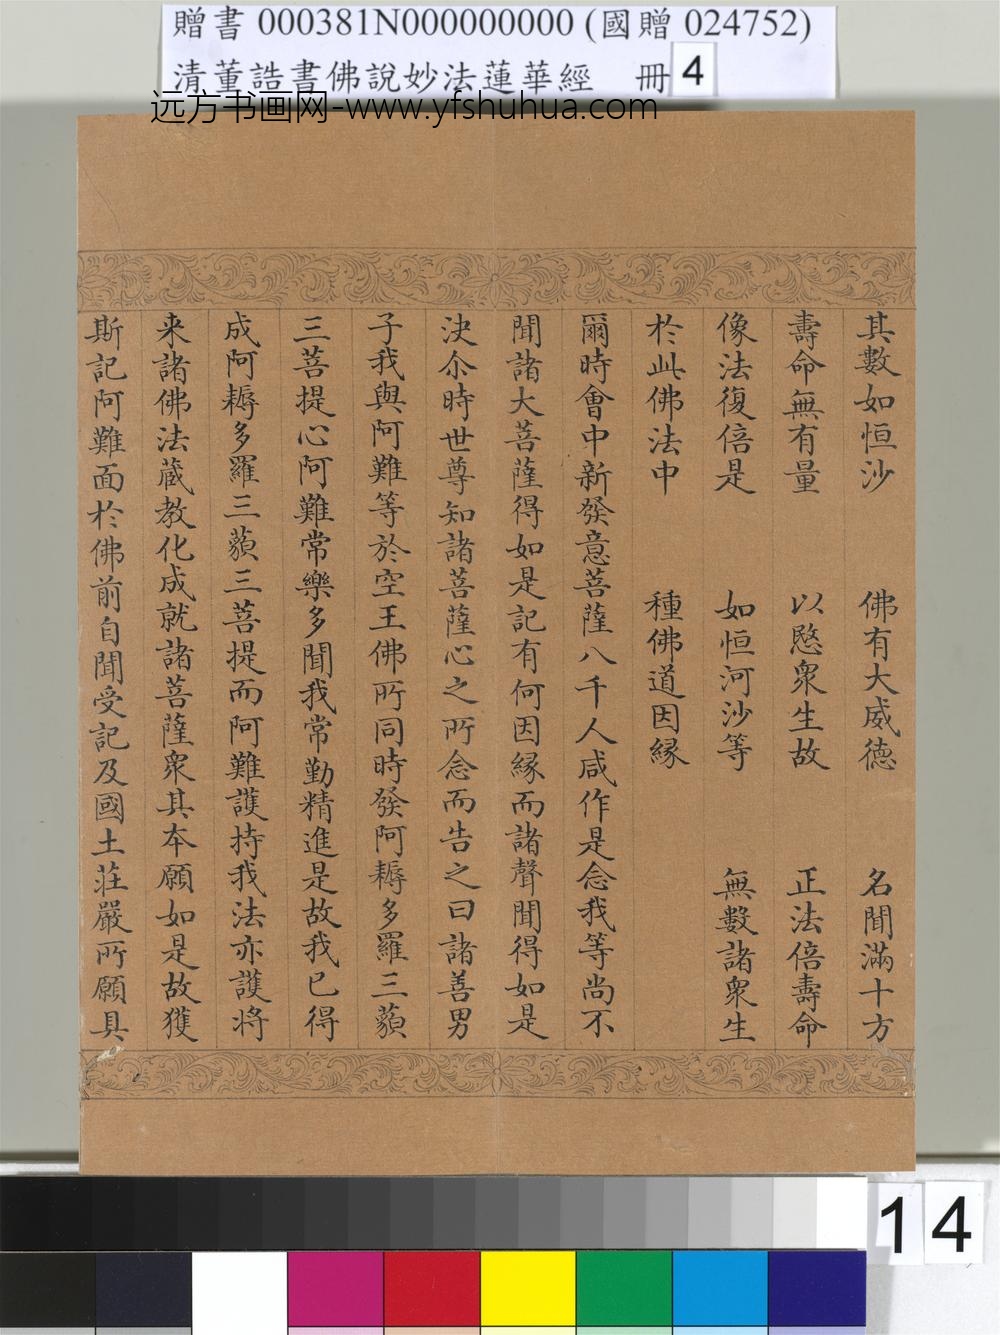 贈書 000381N000000000 (國贈 024752)
清董誥書佛說妙法蓮華經 冊 4
远方书画网-www.yfshuhua.com
其數如恒沙 佛有大威德 名聞滿十方
壽命無有量 以愍衆生故 正法倍壽命
像法復倍是 如恒河沙等 無數諸衆生
於此佛法中 種佛道因緣
爾時會中新發意菩薩八千人咸作是念我等尚不
聞諸大菩薩得如是記有何因緣而諸聲聞得如是
決尒時世尊知諸菩薩心之所念而告之曰諸善男
子我與阿難等於空王佛所同時發阿耨多羅三藐
三菩提心阿難常樂多聞我常勤精進是故我已得
成阿耨多羅三藐三菩提而阿難護持我法亦護将
来諸佛法蔵教化成就諸菩薩衆其本願如是故獲
斯記阿難面於佛前自聞受記及國土莊嚴所願具
14